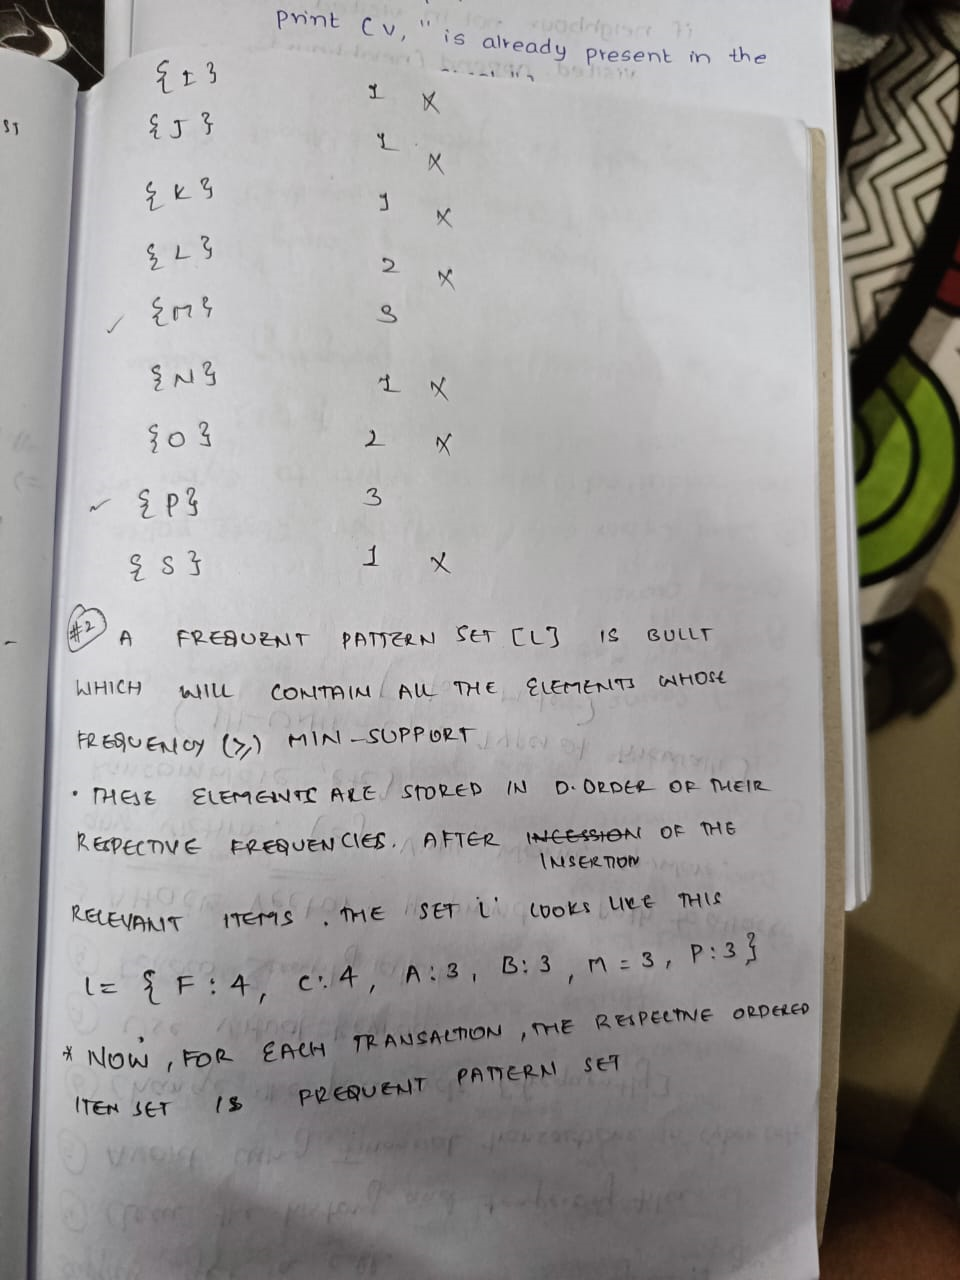 print (v, " is already present in the
ST
{I} 1 X
{J} 1 X
{K} 1 X
{L} 2 X
✓ {M} 3
{N} 1 X
{O} 2 X
✓ {P} 3
{S} 1 X
#2 A FREQUENT PATTERN SET [L] IS BUILT
WHICH WILL CONTAIN ALL THE ELEMENTS WHOSE
FREQUENCY (≥) MIN-SUPPORT
• THESE ELEMENTS ARE STORED IN D.ORDER OF THEIR
RESPECTIVE FREQUENCIES. AFTER INCESSION OF THE
INSERTION
RELEVANT ITEMS. THE SET L' LOOKS LIKE THIS
L= { F:4, C:4, A:3, B:3, M=3, P:3}
* NOW, FOR EACH TRANSACTION, THE RESPECTIVE ORDERED
ITEM SET IS FREQUENT PATTERN SET